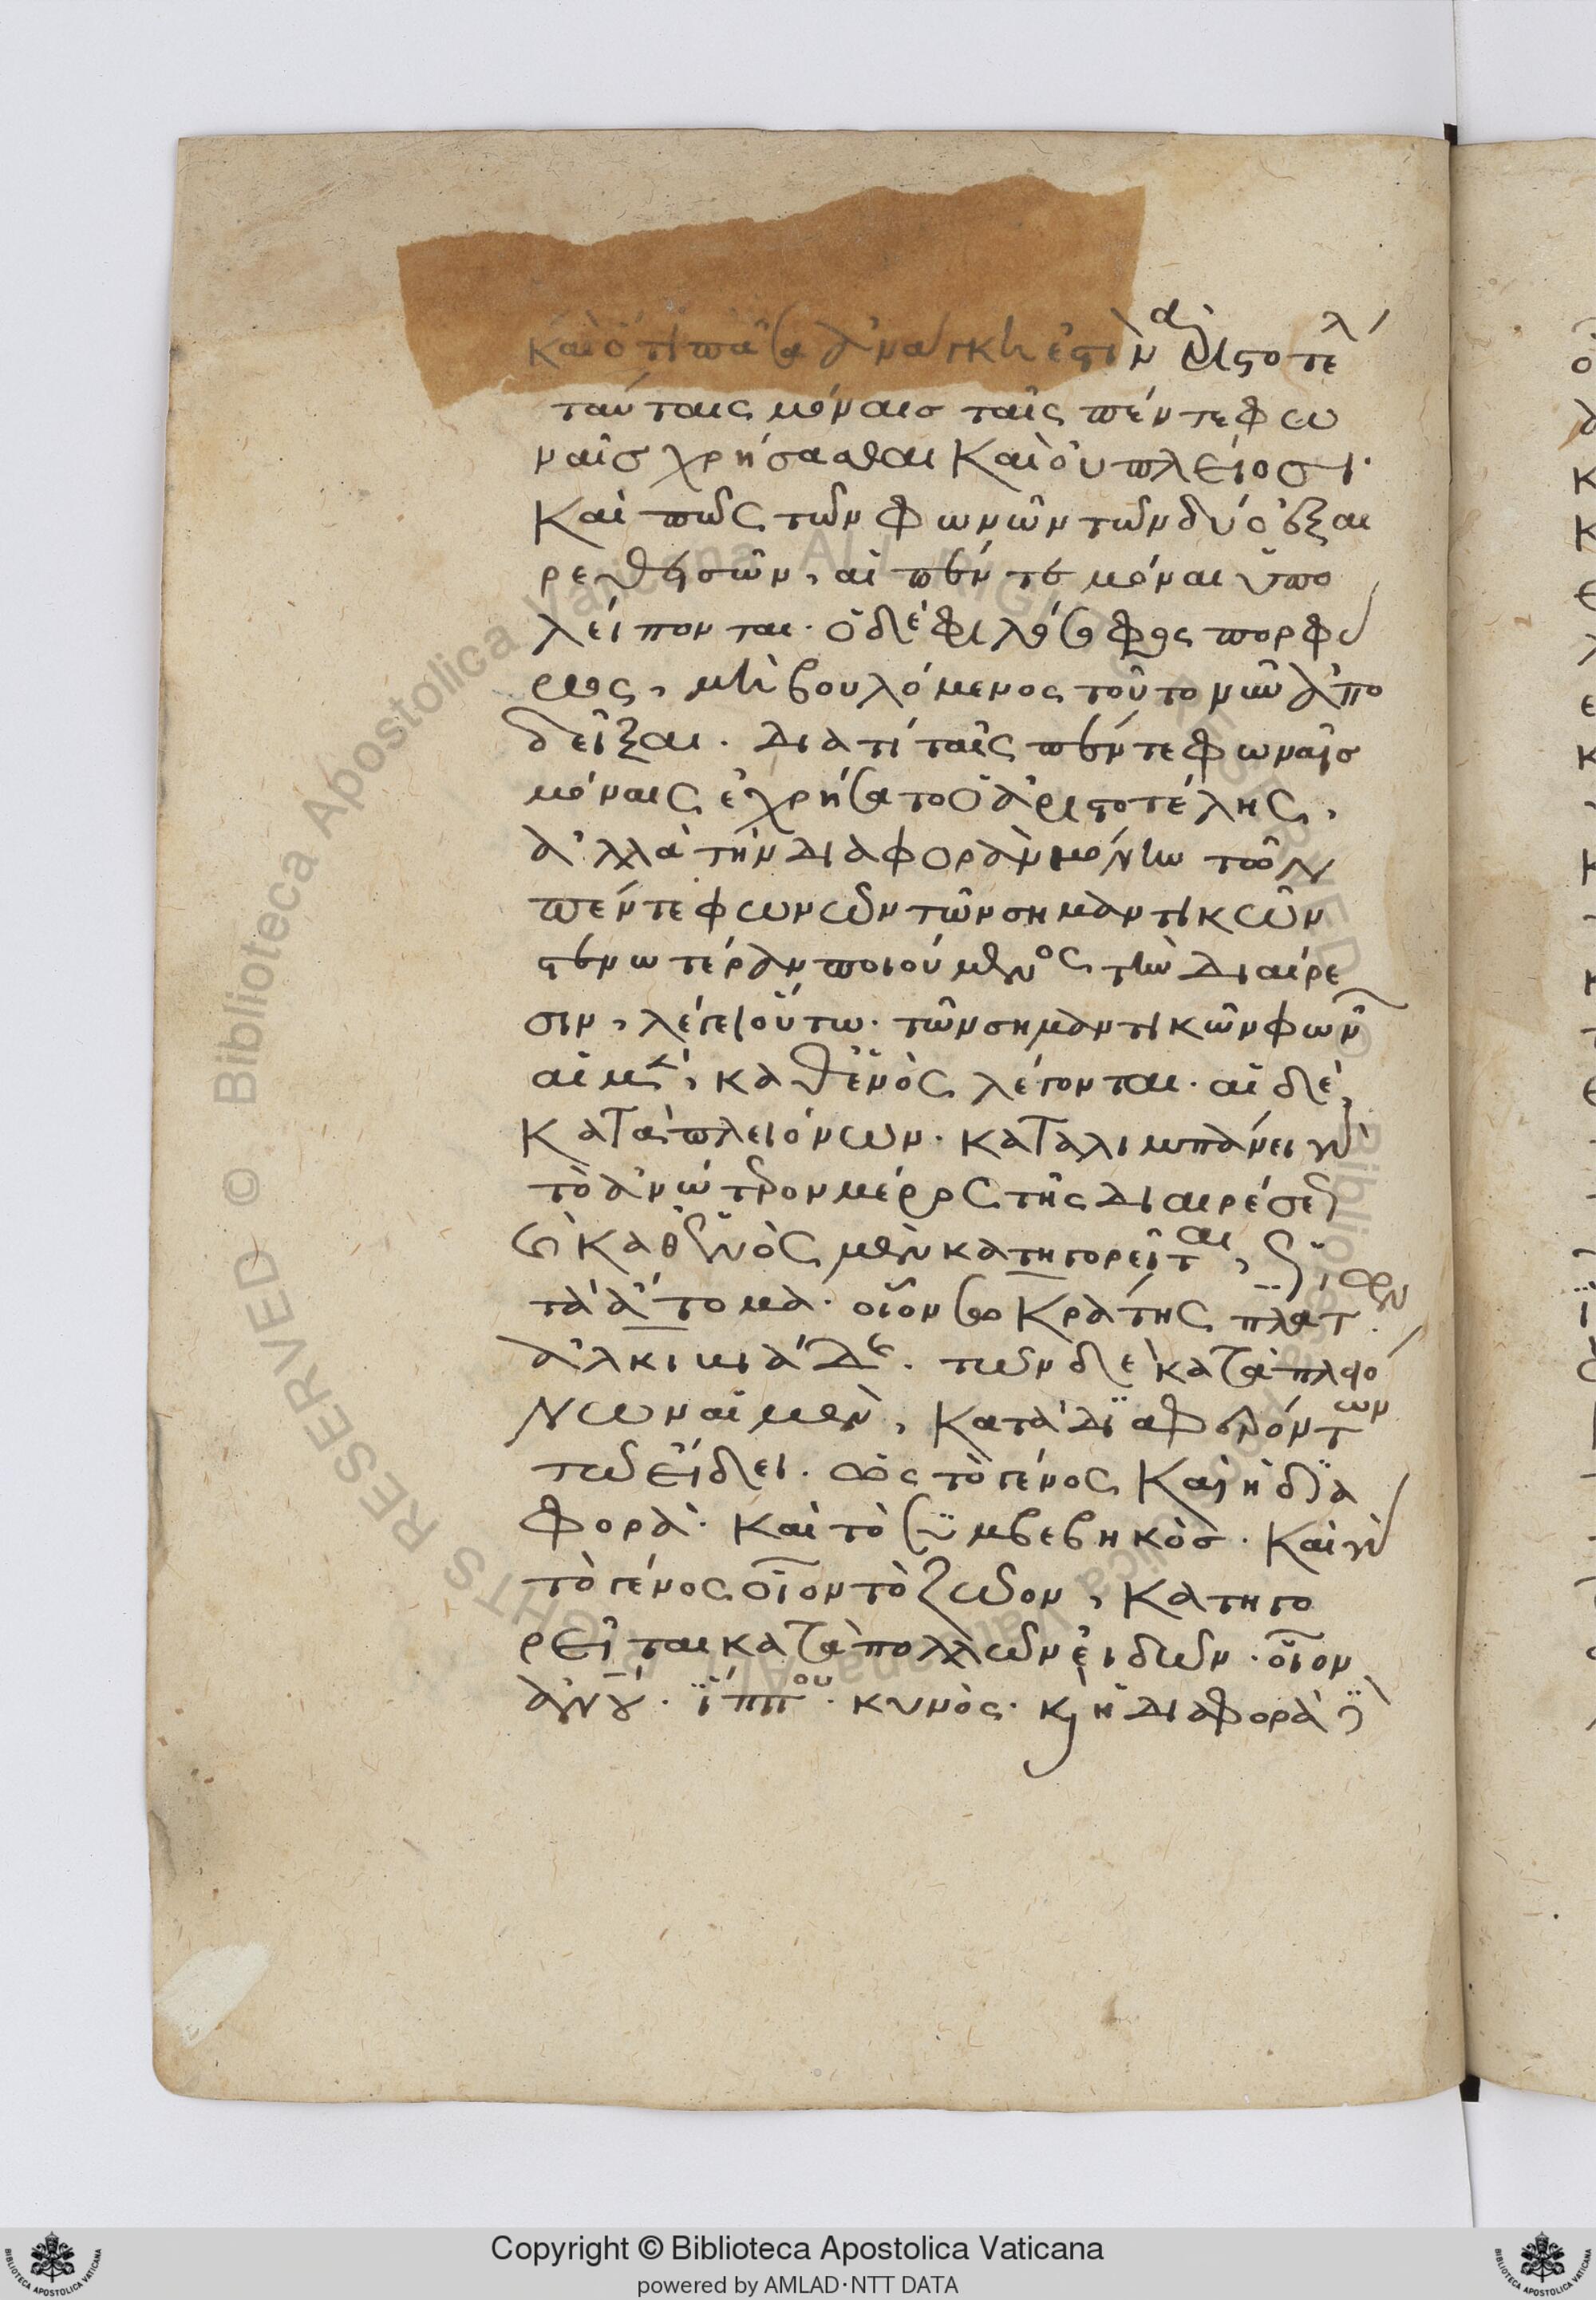 καὶ ὅτι πᾶσα ἀνάγκη ἐστὶν ἀριστοτέλ
ταύταις μόναις ταῖς πέντε φω
ναῖς χρήσασθαι καὶ οὐ πλείοσι·
καὶ πῶς τῶν φωνῶν τῶν δύο ἐξαι
ρεθεισῶν, αἱ πέντε μόναι ὑπο
λείπονται. ὁ δὲ φιλόσοφος πορφύ
ριος, μὴ βουλόμενος τοῦτο νῦν ἀπο
δεῖξαι. διατί ταῖς πέντε φωναῖς
μόναις ἐχρήσατο ὁ ἀριστοτέλης,
ἀλλὰ τὴν διαφορὰν μόνην τῶν
πέντε φωνῶν τῶν σημαντικῶν
στενωτέραν ποιούμενος τὴν διαίρε
σιν, λέγει οὕτω. τῶν σημαντικῶν φων
αἱ μὲν, καθ' ἑνὸς λέγονται. αἱ δὲ,
κατὰ πλειόνων. καταλιμπάνει γὰρ
τὸ ἀνώτερον μέρος τῆς διαιρέσε
καθ' ἑνὸς μὲν κατηγορεῖται,
τὰ ἄτομα. οἷον σωκράτης πλάτ
ἀλκιβιάδ. τῶν δὲ κατὰ πλειό
νων αἱ μὲν, κατὰ διαφερόντων
τῶ εἴδει. ὡς τὸ γένος καὶ ἡ δια
φορὰ. καὶ τὸ συμβεβηκὸς. καὶ γὰρ
τὸ γένος οἷον τὸ ζῶον, κατηγο
ρεῖται κατὰ πολλῶν εἰδῶν. οἷον
ἀνου. ἵππου. κυνός. κ ἡ διαφορὰ
Copyright © Biblioteca Apostolica Vaticana
powered by AMLAD·NTT DATA